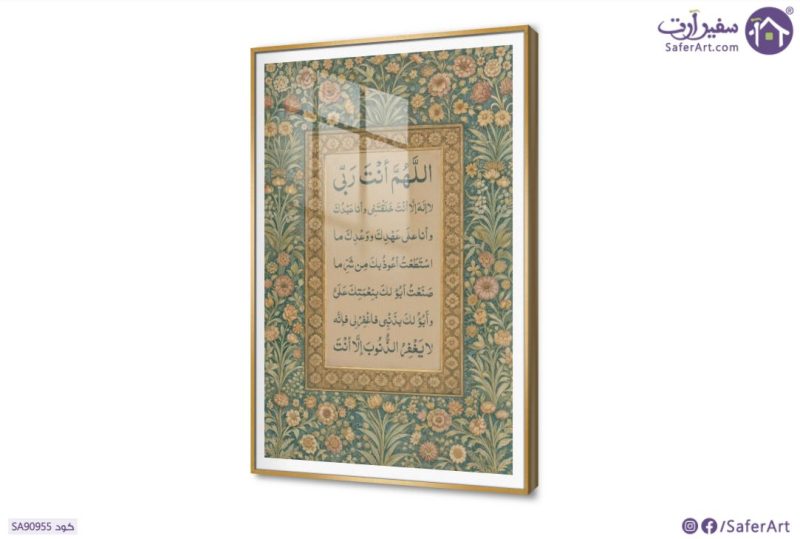 سفير آرت
SaferArt.com
اللَّهُمَّ أَنْتَ رَبِّي
لا إله إلا أنت خلقتني وأنا عبدك
وأنا على عهدك ووعدك ما
استطعت أعوذ بك من شر ما
صنعت أبوء لك بنعمتك علي
وأبوء لك بذنبي فاغفر لي فإنه
لا يغفر الذنوب إلا أنت
كود SA90955
/SaferArt